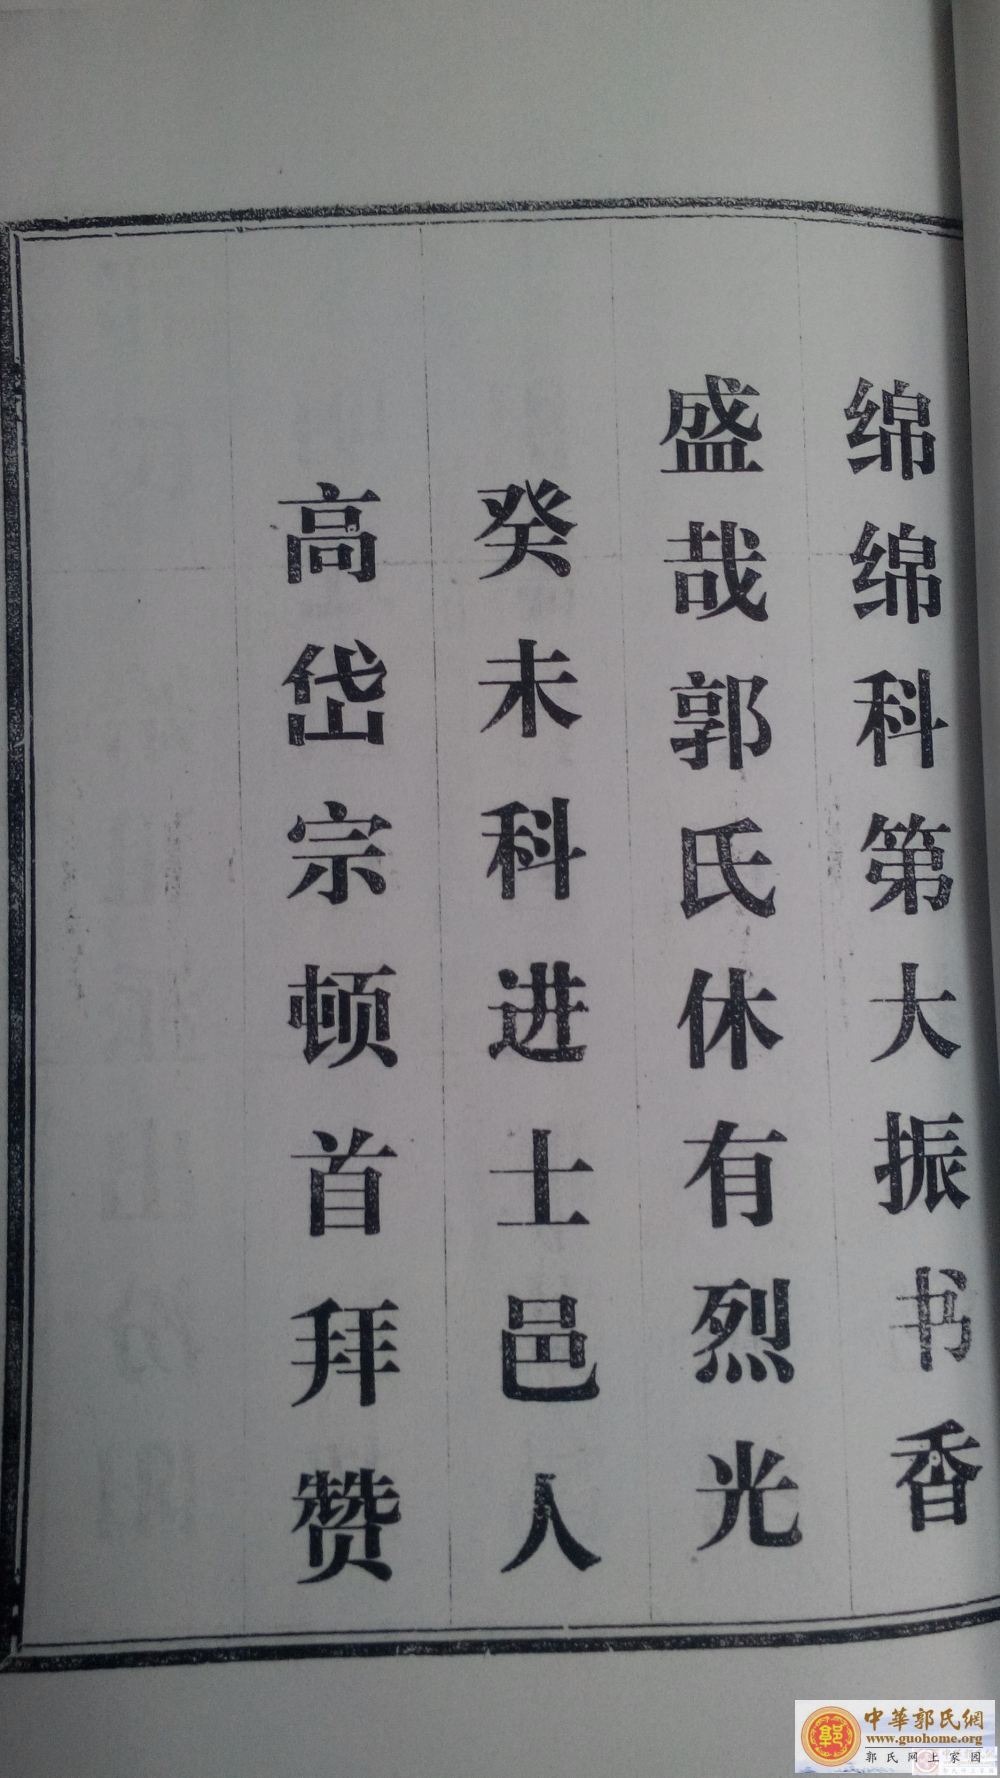 绵绵科第大振书香
盛哉郭氏休有烈光
癸未科进士邑人
高岱宗顿首拜赞
中華郭氏網
www.guohome.org
郭氏网上家园